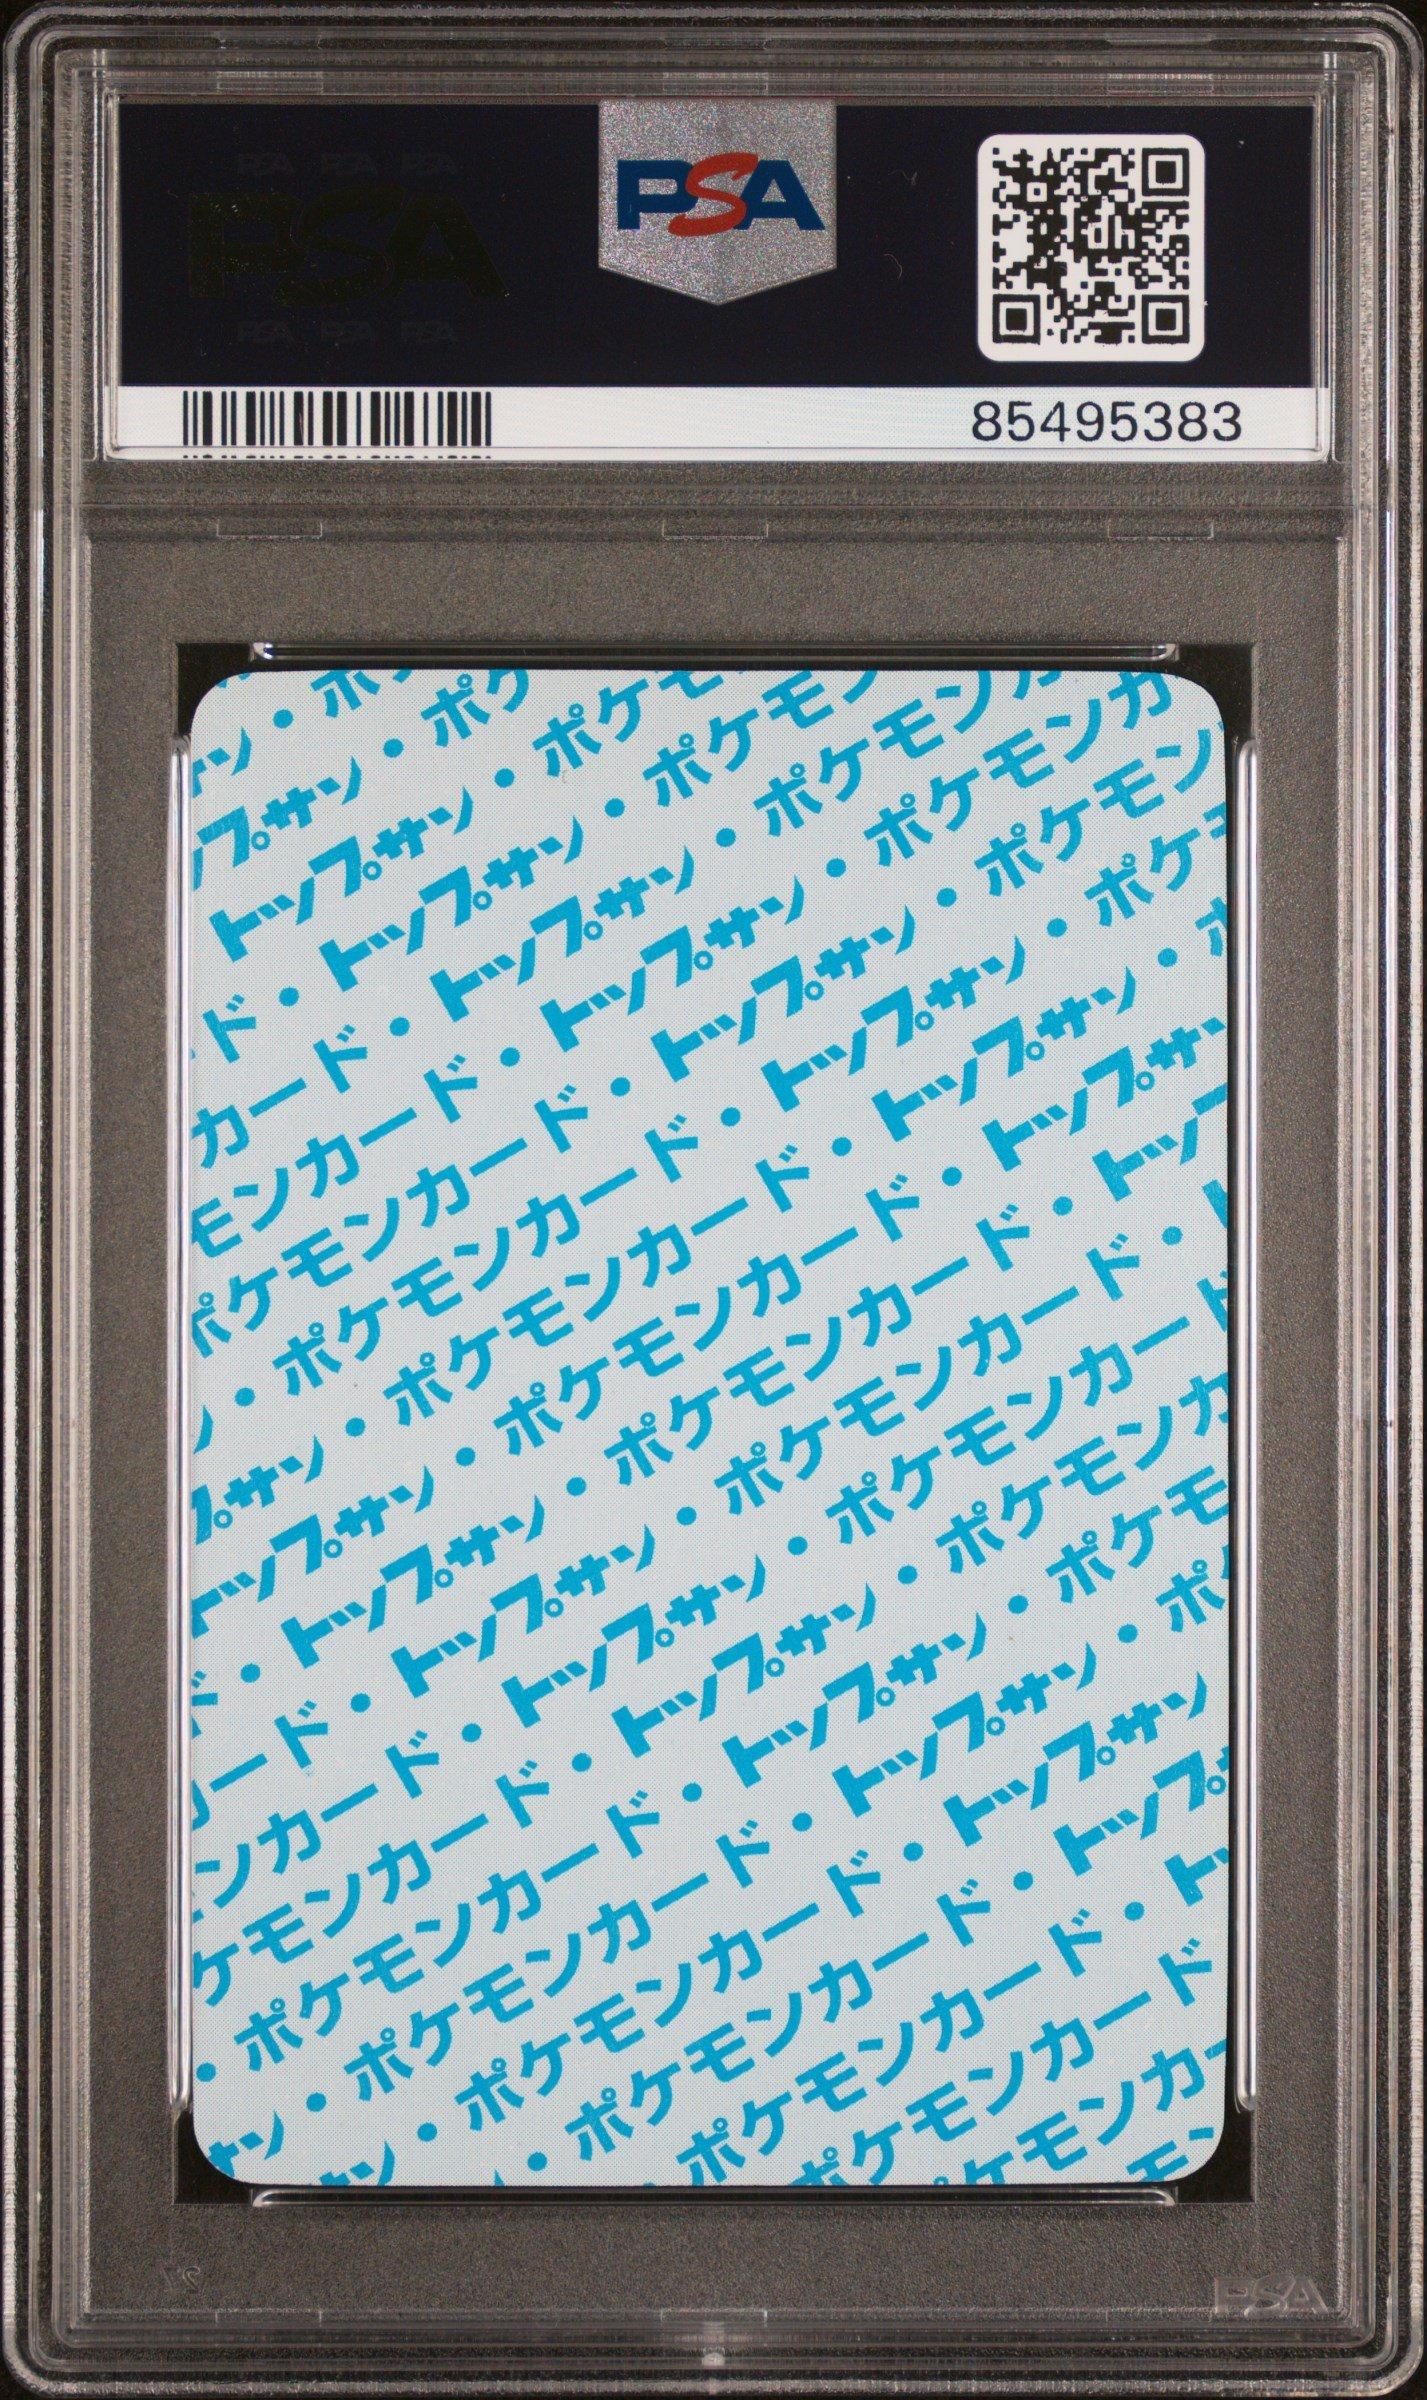 PSA PSA PSA
PSA
PSA PSA PSA
PSA
dh
85495383
サン・ポケ
プサン・ポケ
トップサン・ポケモ
ド・トップサン・ポケモン
カード・トップサン・ポケモンカ
モンカード・トップサン・ポケモンカ
ポケモンカード・トップサン・ポケモン
ン・ポケモンカード・トップサン・ポケ
プサン・ポケモンカード・トップサン・ポ
トップサン・ポケモンカード・トップサン
ド・トップサン・ポケモンカード・トップ
カード・トップサン・ポケモンカード・ト
ンカード・トップサン・ポケモンカード
ケモンカード・トップサン・ポケモンカ
・ポケモンカード・トップサン・ポケモ
サン・ポケモンカード・トップサン・ポ
サン・ポケモンカード・トップサン
・ポケモンカード・トップ
ポケモンカード・ト
ポケモンカード
ケモンカ
モ
PSA